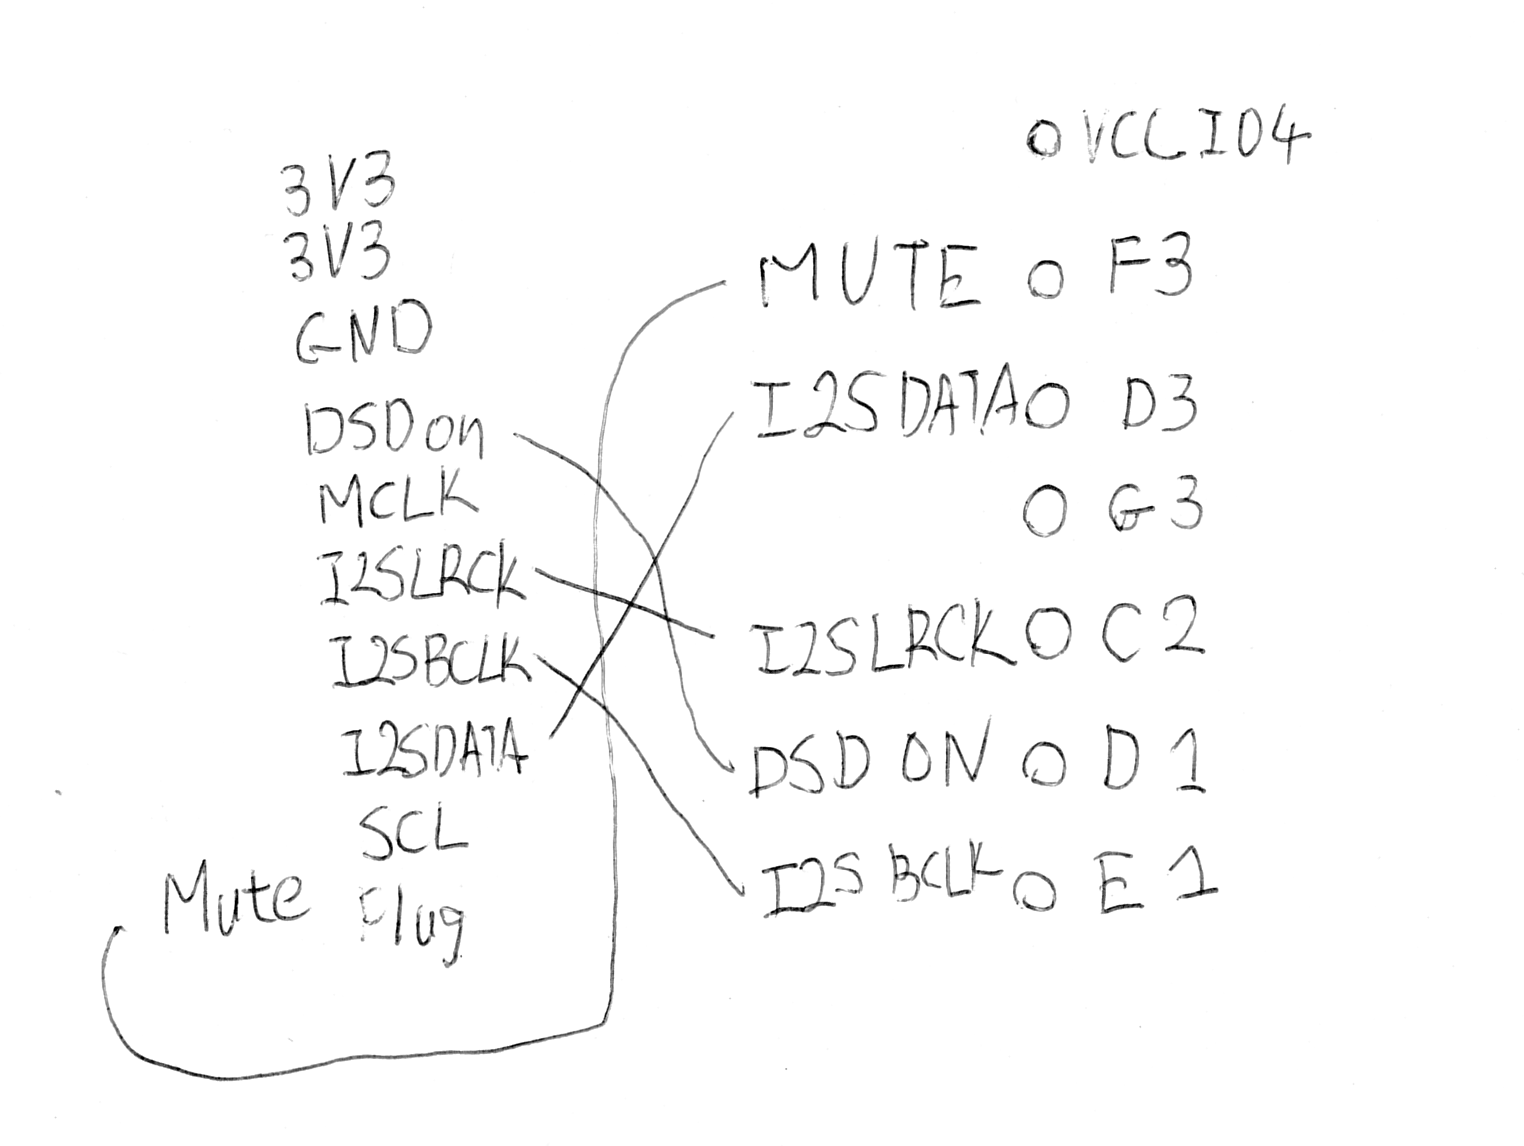 VCCIO4
3V3
3V3
MUTE O F3
GND
I2SDATA O D3
DSD on
MCLK
O G3
I2SLRCK
I2SLRCK O C2
I2SBCLK
I2SDATA
DSD ON O D1
SCL
Mute Plug
I2S BCLK O E1